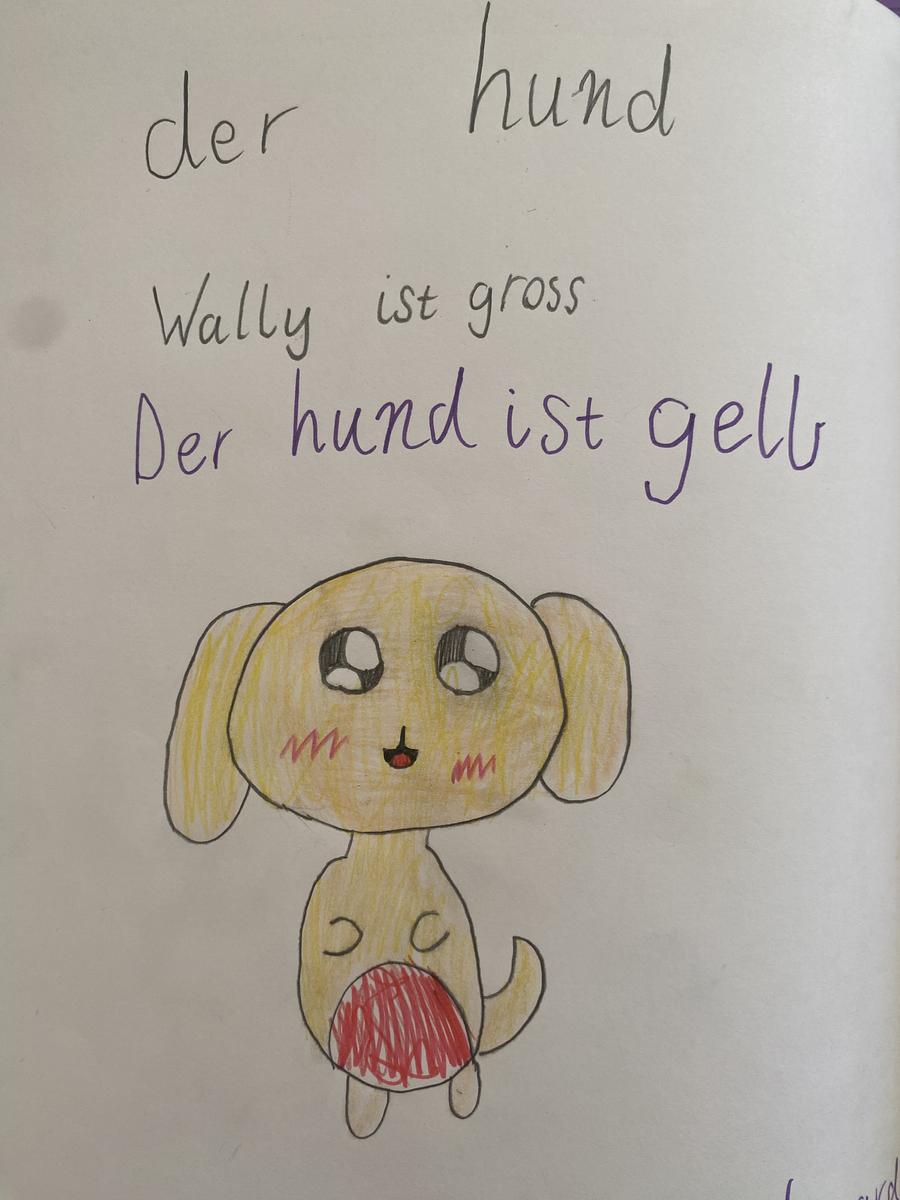 der hund
Wally ist gross
Der hund ist gelb